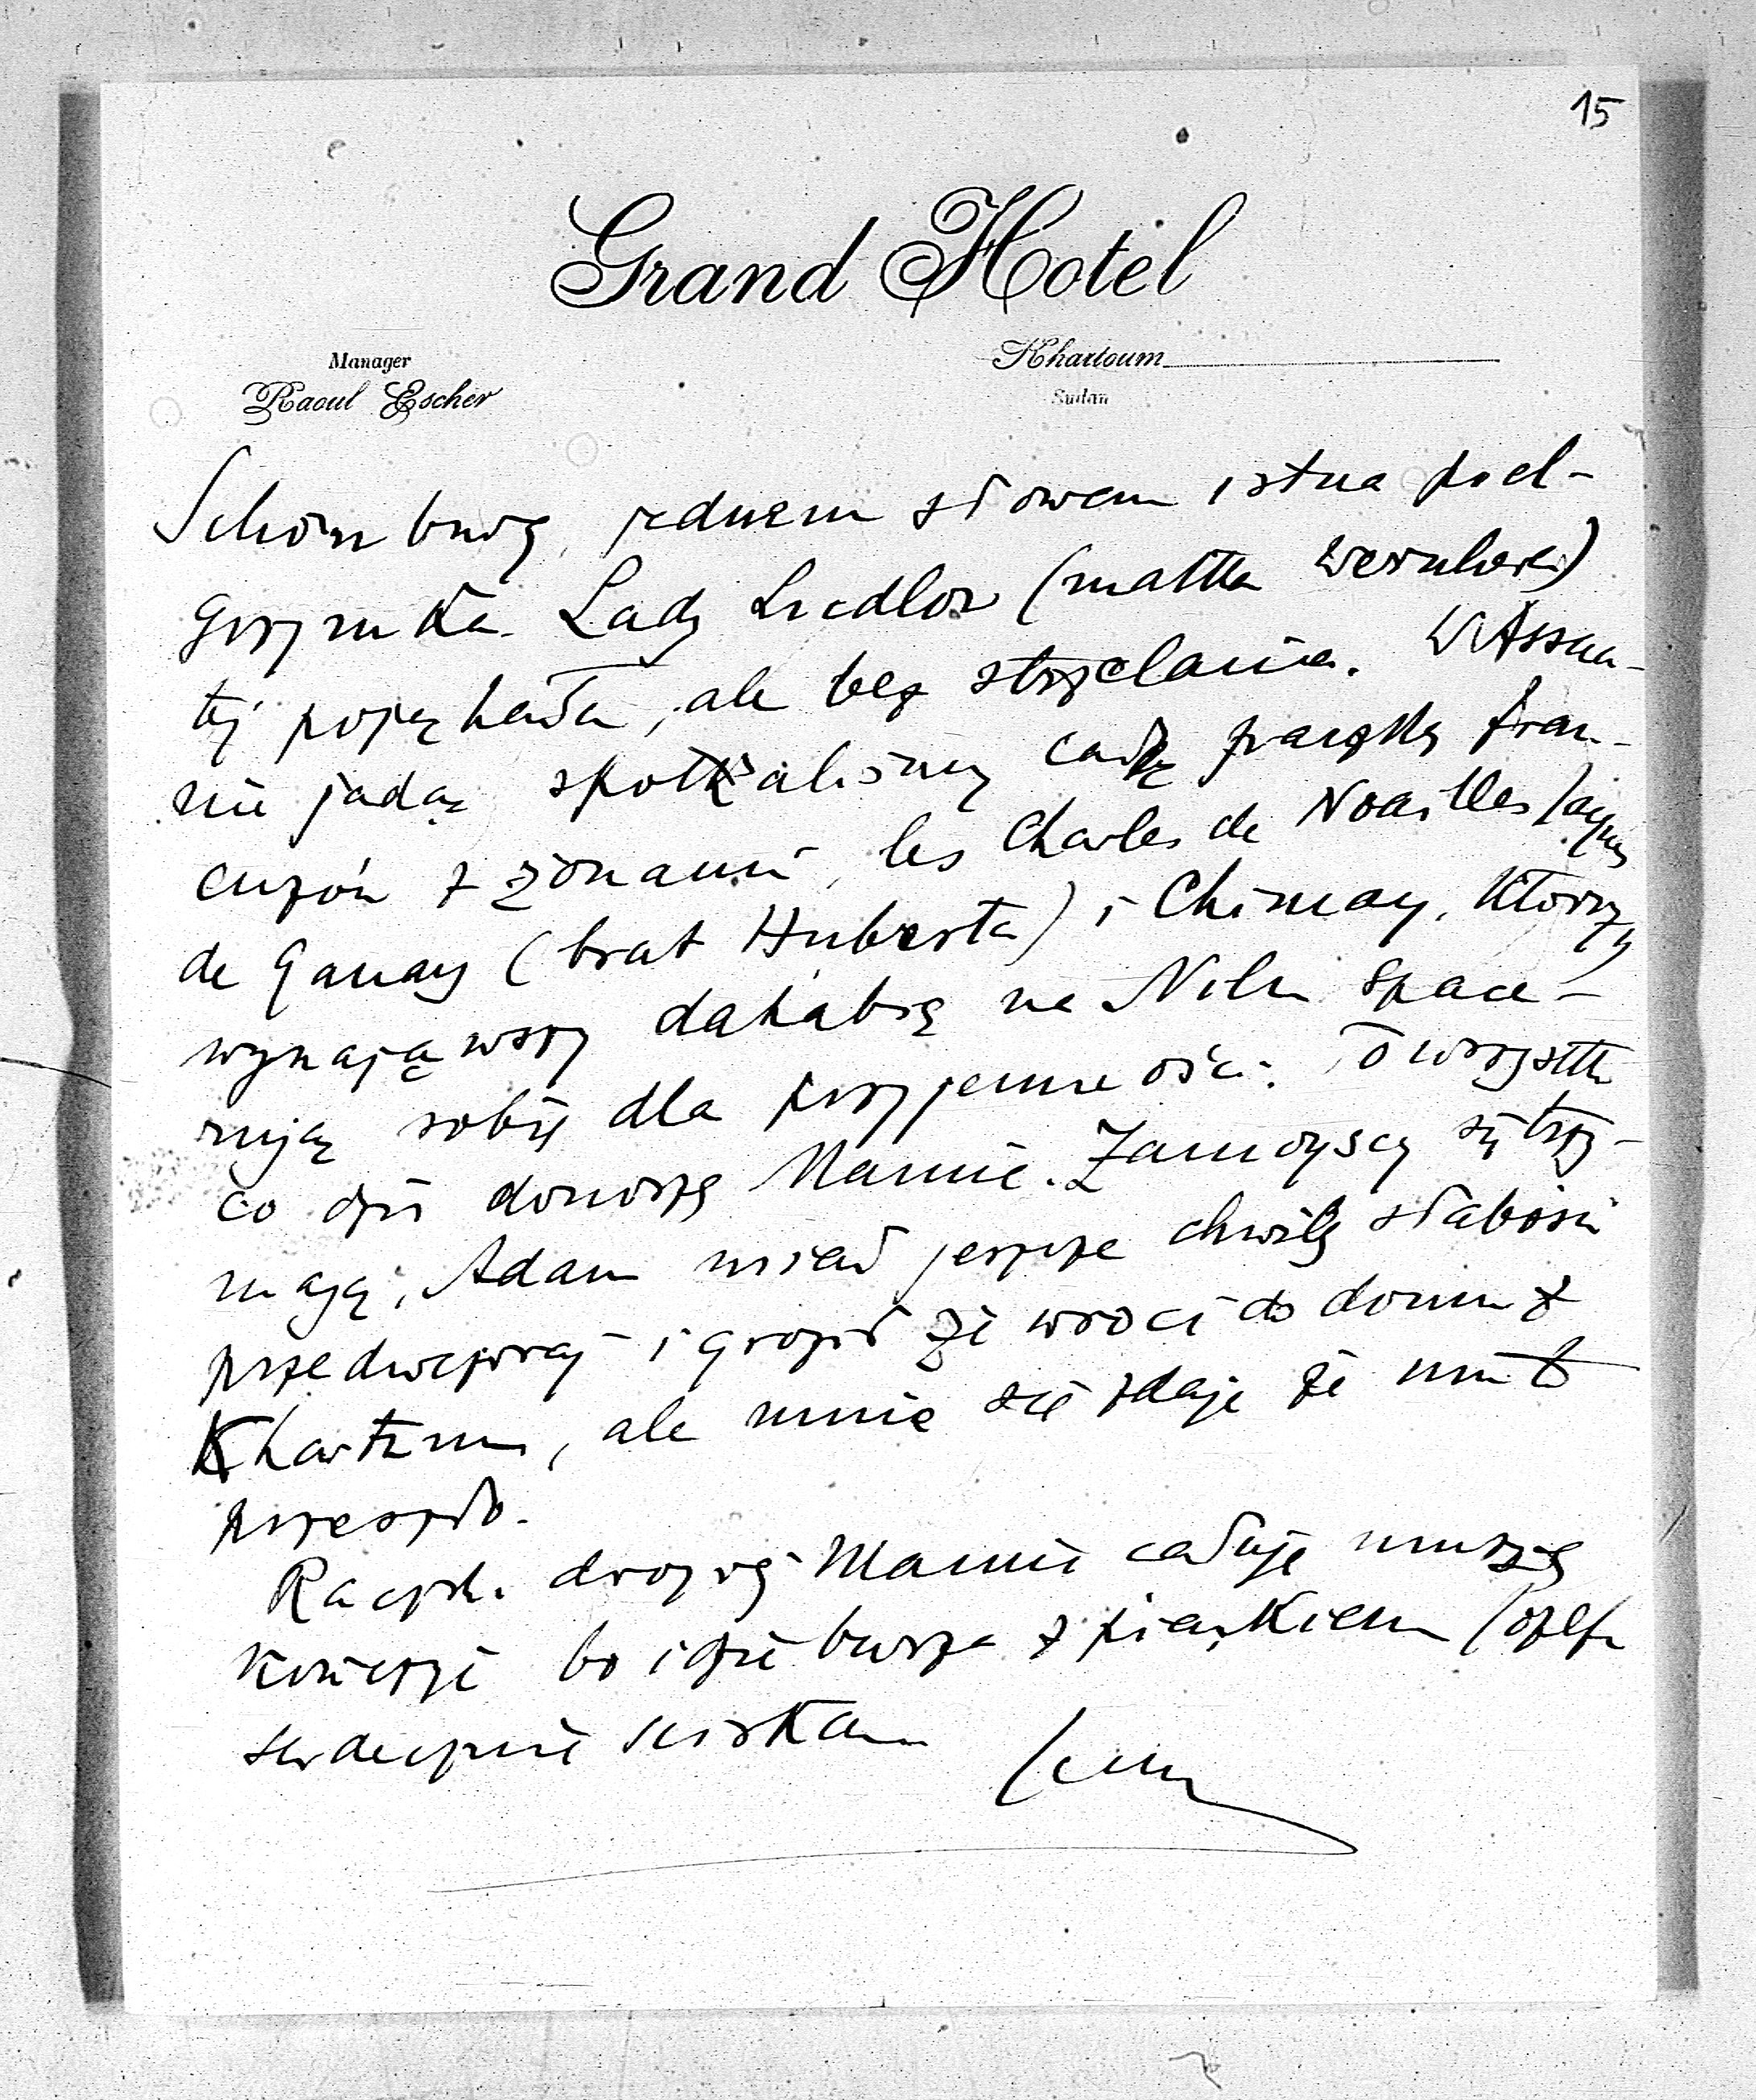 15
Grand Hotel
Manager
Raoul Escher
Khartoum
Sudan
Schönburg, jednem słowem istna piel-
grzymka. Lady Ludlow (matka Wernhera)
tej pojechała, ale bez strzelania. W Assua-
nie jadąc spotkaliśmy całą paczkę fran-
cuzów z żonami, les Charles de Noailles
de Ganay (brat Huberta) i Chimay, którzy
wynająwszy dahabię na Nilu space-
rują sobie dla przyjemności. To wszystko
co dziś donoszę Mamie. Zamoyscy się trzy-
mają, Adam miał jeszcze chwilę słabości
przedwczoraj i groził że wróci do domu z
Khartumu, ale mnie się zdaje że mu to
przeszło.
Rączki drogiej Mamie całuję muszę
kończyć bo idzie burza z piaskiem Józefa
serdecznie ściskam